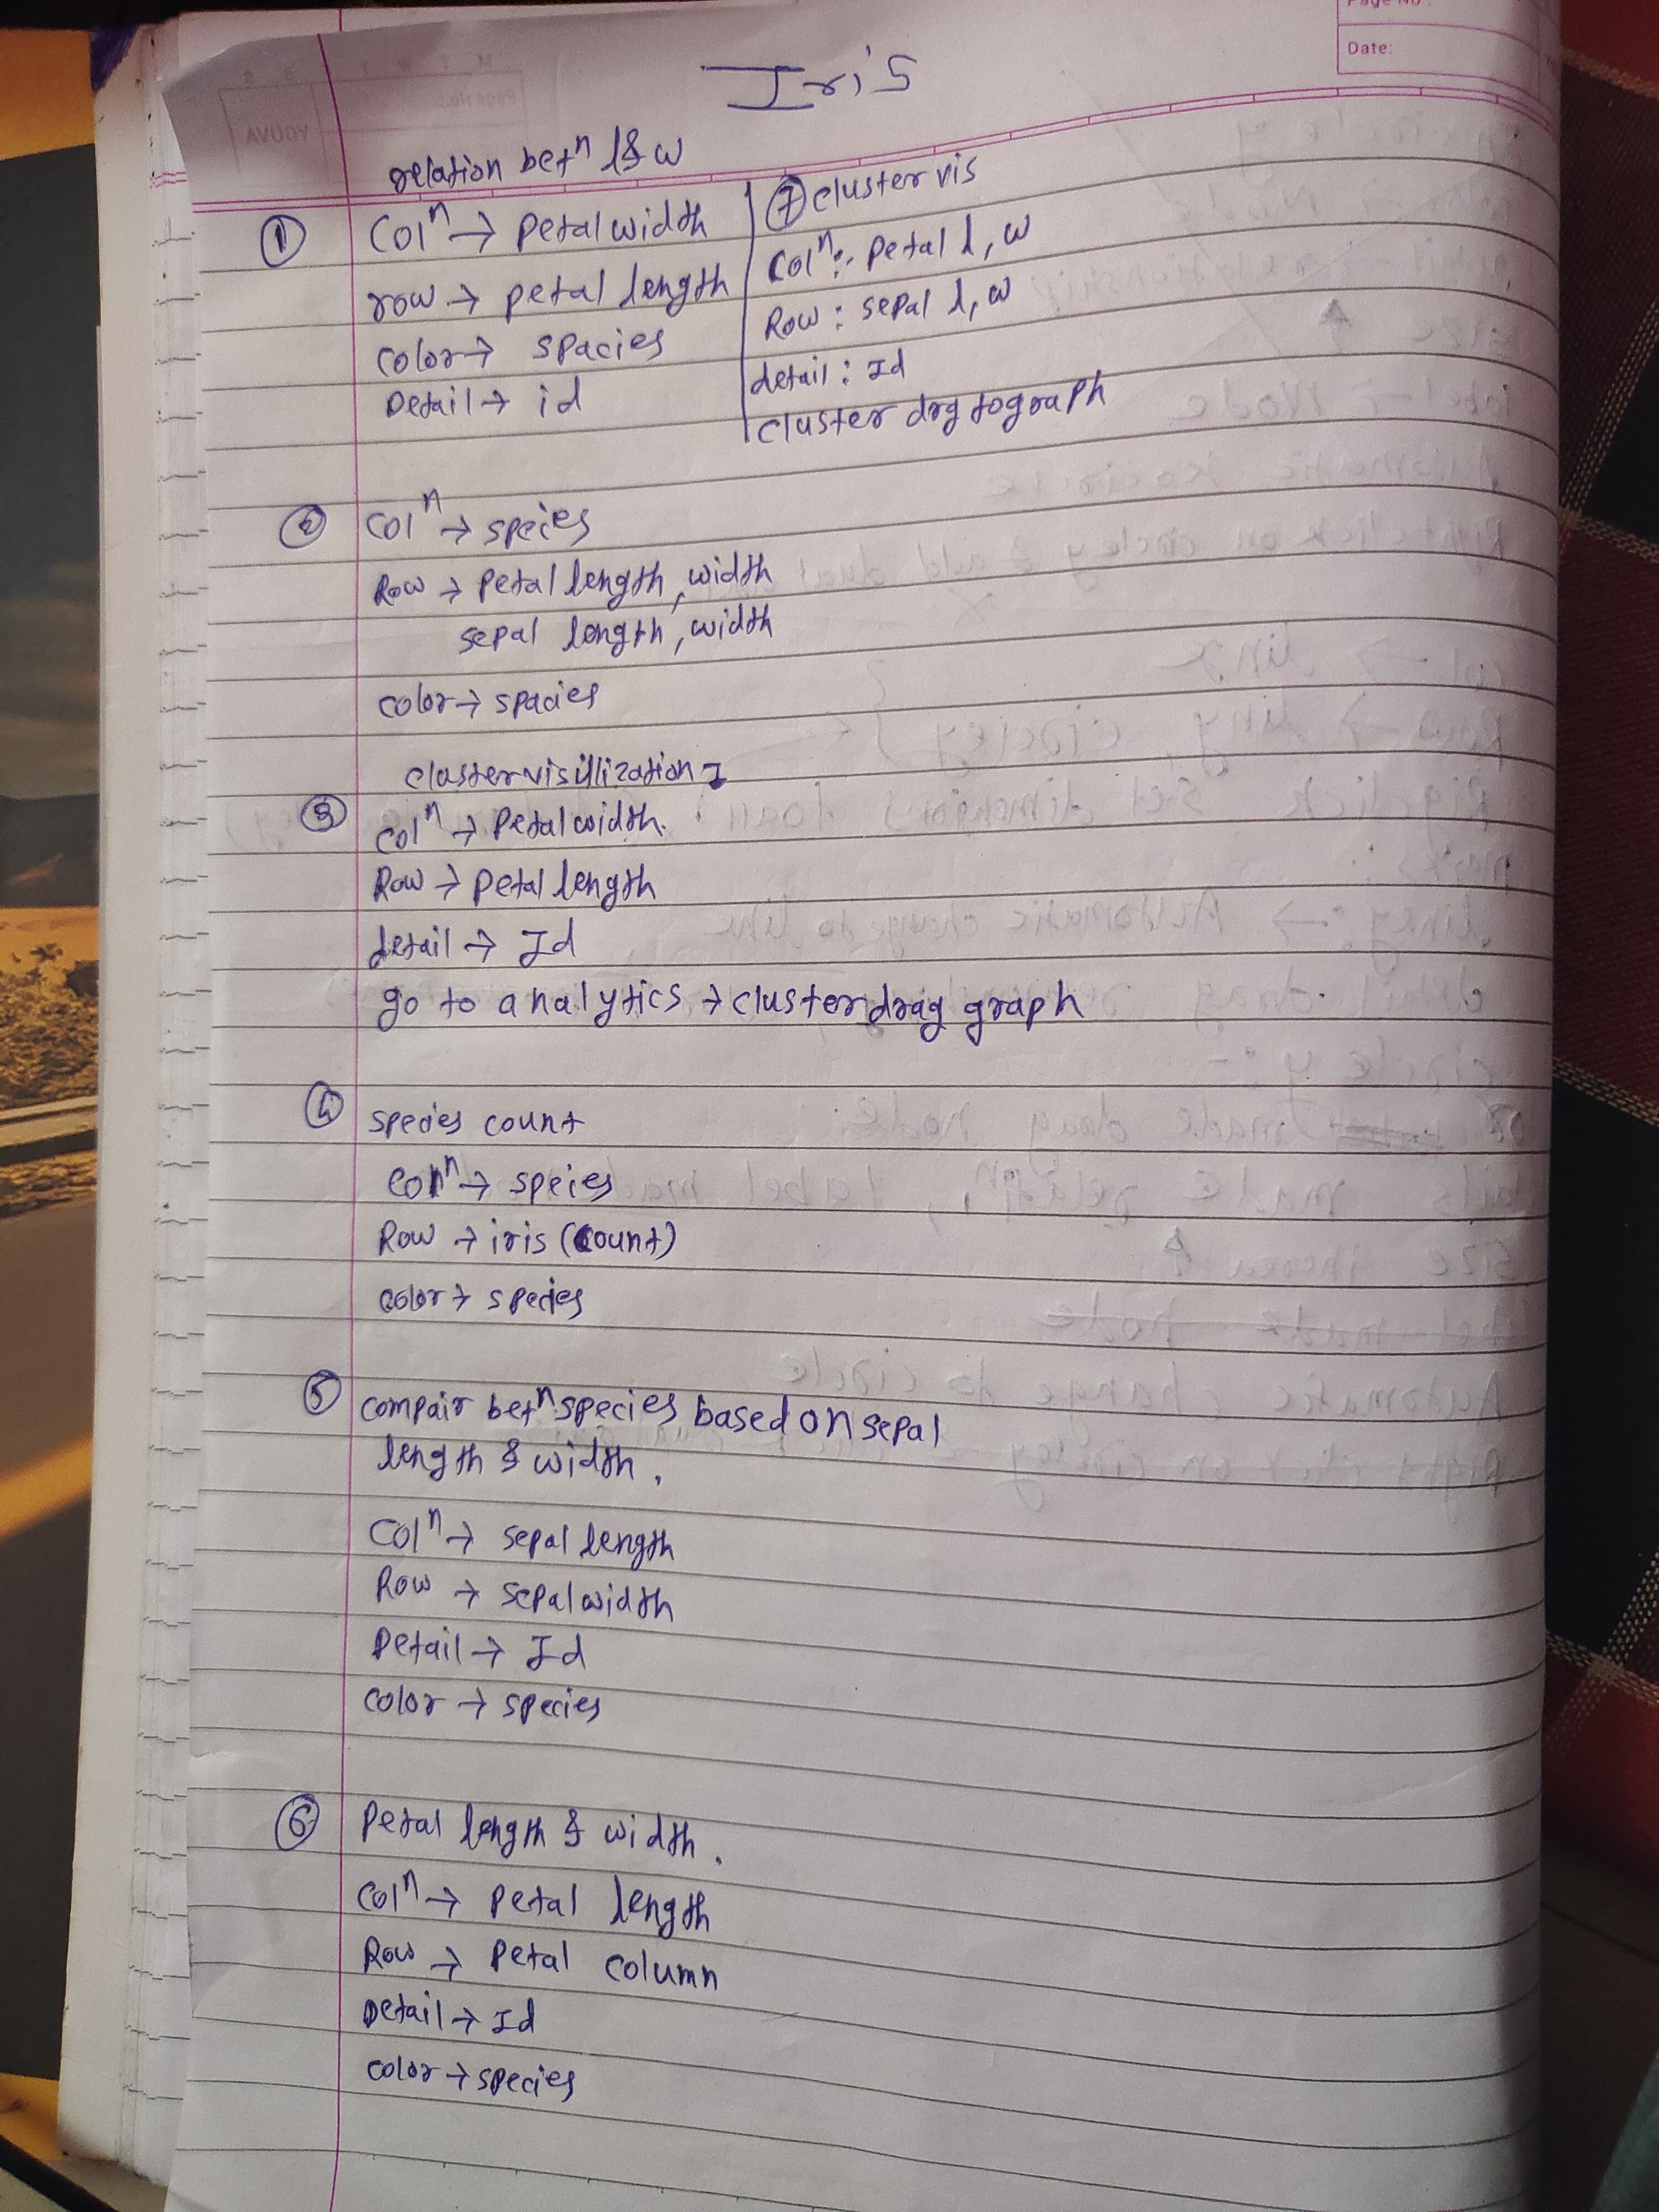 Page No :
Date:
Iris
relation betⁿ l & w
① Colⁿ → Petal width
row → petal length
color → spacies
Detail → id
⑦ cluster vis
Colⁿ :- Petal l, w
Row : sepal l, w
detail : Id
cluster drg to graph
② Colⁿ → species
Row → Petal length, width
sepal length, width
color → spacies
cluster visillization I
③ Colⁿ → Petal width.
Row → Petal length
detail → Id
go to analytics → cluster drag graph
④ species count
Colⁿ → speies
Row → iris (count)
color → species
⑤ compair betⁿ species based on sepal
length & width.
Colⁿ → sepal length
Row → sepal width
Detail → Id
color → species
⑥ Petal length & width.
Colⁿ → Petal length
Row → Petal column
Detail → Id
color → species